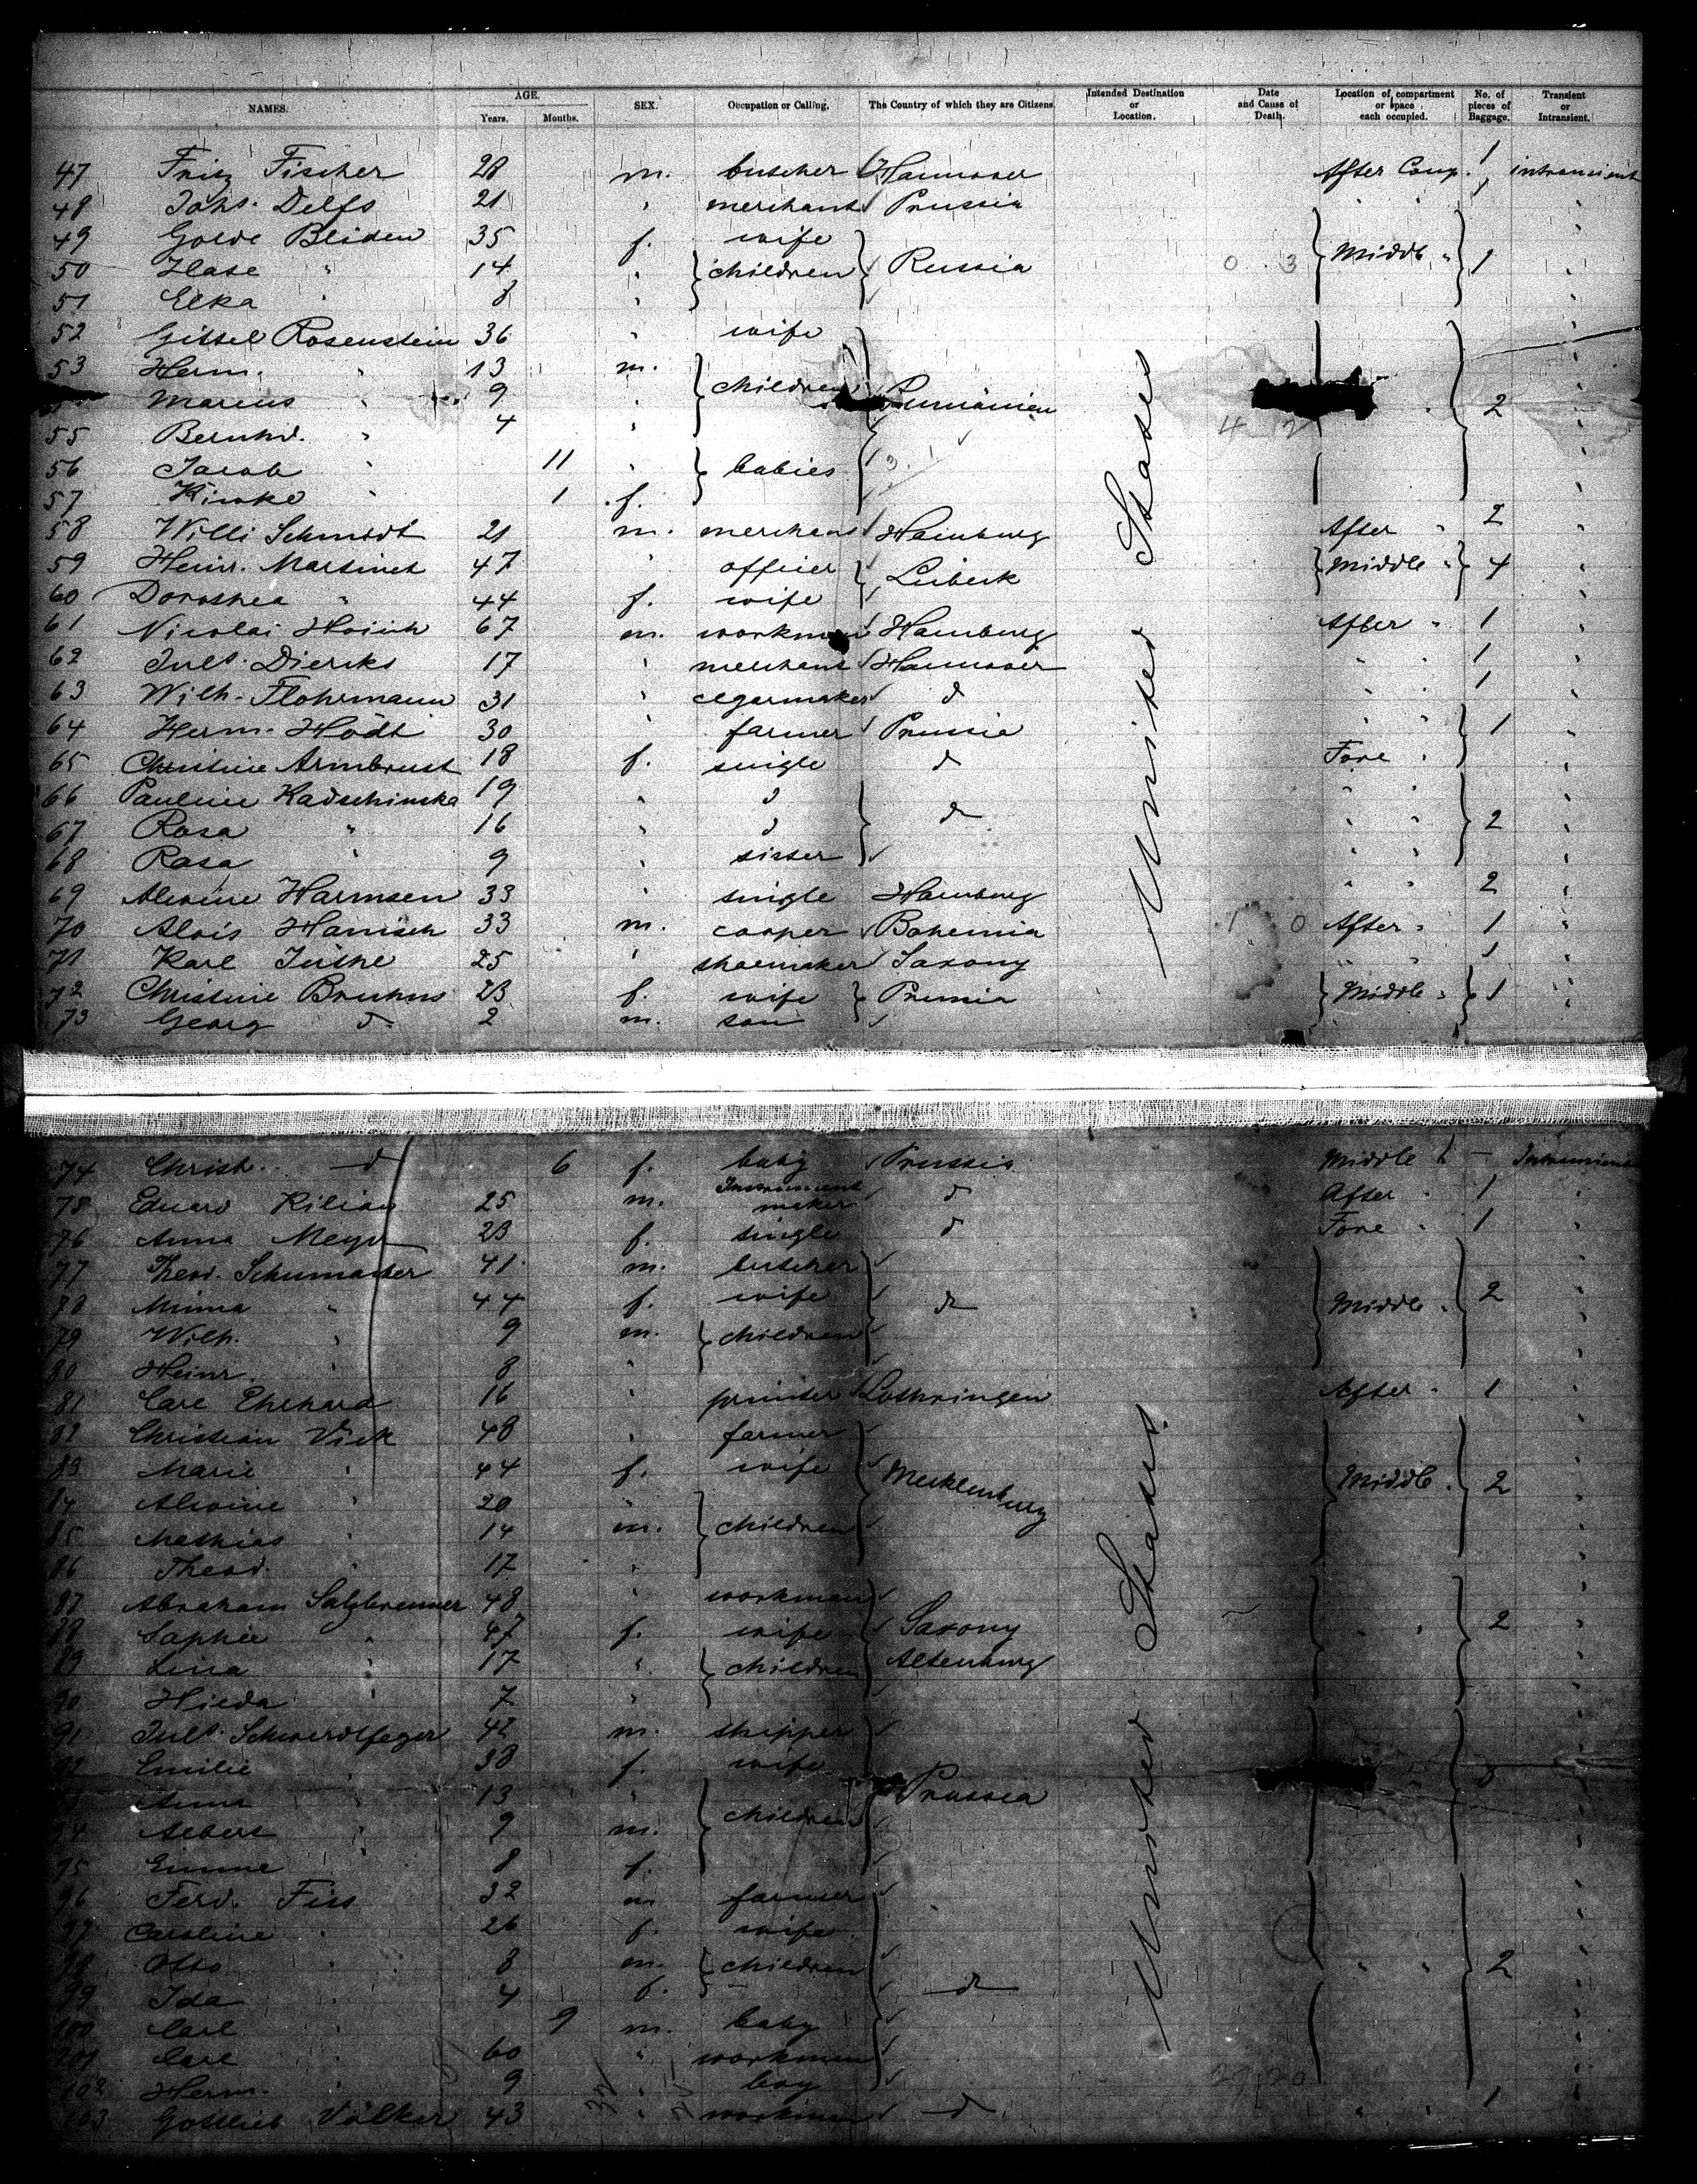 NAMES. AGE. Years. Months. SEX. Occupation or Calling. The Country of which they are Citizens. Intended Destination or Location. Date and Cause of Death. Location of compartment or space each occupied. No. of pieces of Baggage. Transient or Intransient.
47 Fritz Fischer 28 m. butcher Hannover After Comp. 1 intransient
48 Johs. Delfs 21 " merchant Prussia " " 1 "
49 Golde Bliden 35 f. wife "
50 Hase " 14 " children Russia 0 3 Middle " 1 "
51 Elka " 8 " "
52 Gittel Rosenstein 36 " wife "
53 Herm. " 13 m. "
Marcus " 9 " children Rumänien " 2 "
55 Bernhd. " 4 " 4 2 "
56 Jacob " 11 " babies "
57 " 1 f. "
58 Willi Schmidt 21 m. merchant Hamburg After " 2 "
59 Heinr. Martinet 47 " officer Lübeck Middle " 4 "
60 Dorothea " 44 f. wife "
61 Nicolai 67 m. workman Hamburg After " 1 "
62 Juls. Diercks 17 " merchant Hannover " " 1 "
63 Wilh. Flohrmann 31 " cigarmaker d " " 1 "
64 Herm. Hödt 30 " farmer Prussia " " 1 "
65 Christine Armbrust 18 f. single d Fore " "
66 Pauline Kadschinska 19 " d " " "
67 Rosa " 16 " d d " " 2 "
68 Rosa " 9 " sister " " "
69 Alwine Harmsen 33 " single Hamburg " " 2 "
70 Alois Hanisch 33 m. cooper Bohemia 1 0 After " 1 "
71 Karl Juthe 25 " shoemaker Saxony " " 1 "
72 Christine Bruhns 23 f. wife Prussia Middle " 1 "
73 Georg d. 2 m. son
United States
74 Christ. d 6 f. baby Prussia Middle " – Intransient
75 Eduard Kilian 25 m. Instrument maker d After " 1 "
76 Anna Meyer 23 f. single d Fore " 1 "
77 Theod. Schumacher 41 m. butcher "
78 Minna " 44 f. wife d Middle " 2 "
79 Wilh. " 9 m. children "
80 Heinr. " 8 " "
81 Carl Ehrhard 16 " printer Lothringen After " 1 "
82 Christian Vick 48 " farmer "
83 Marie " 44 f. wife Mecklenburg Middle " 2 "
84 Alwine " 20 " "
85 Mathias " 14 m. children "
86 Theod. " 17 " "
87 Abraham Salzbrenner 48 " workman "
88 Sophie " 47 f. wife Saxony " " 2 "
89 Lina " 17 " children Altenburg "
90 Hilda " 7 " "
91 Juls. Schwerdtfeger 42 m. shipper "
92 Emilie " 38 f. wife "
93 Anna " 13 " Prussia " 3 "
94 Albert " 9 m. children "
95 Emme " 8 f. "
96 Ferd. Fiss 32 m farmer "
97 Caroline " 26 f. wife "
98 Otto " 8 m. children " " 2 "
99 Ida " 4 f. d "
100 Carl " 9 m. baby "
101 Carl " 60 " workman "
102 Herm. " 9 " boy "
103 Gottlieb Völker 43 " workman d " " 1 "
United States.